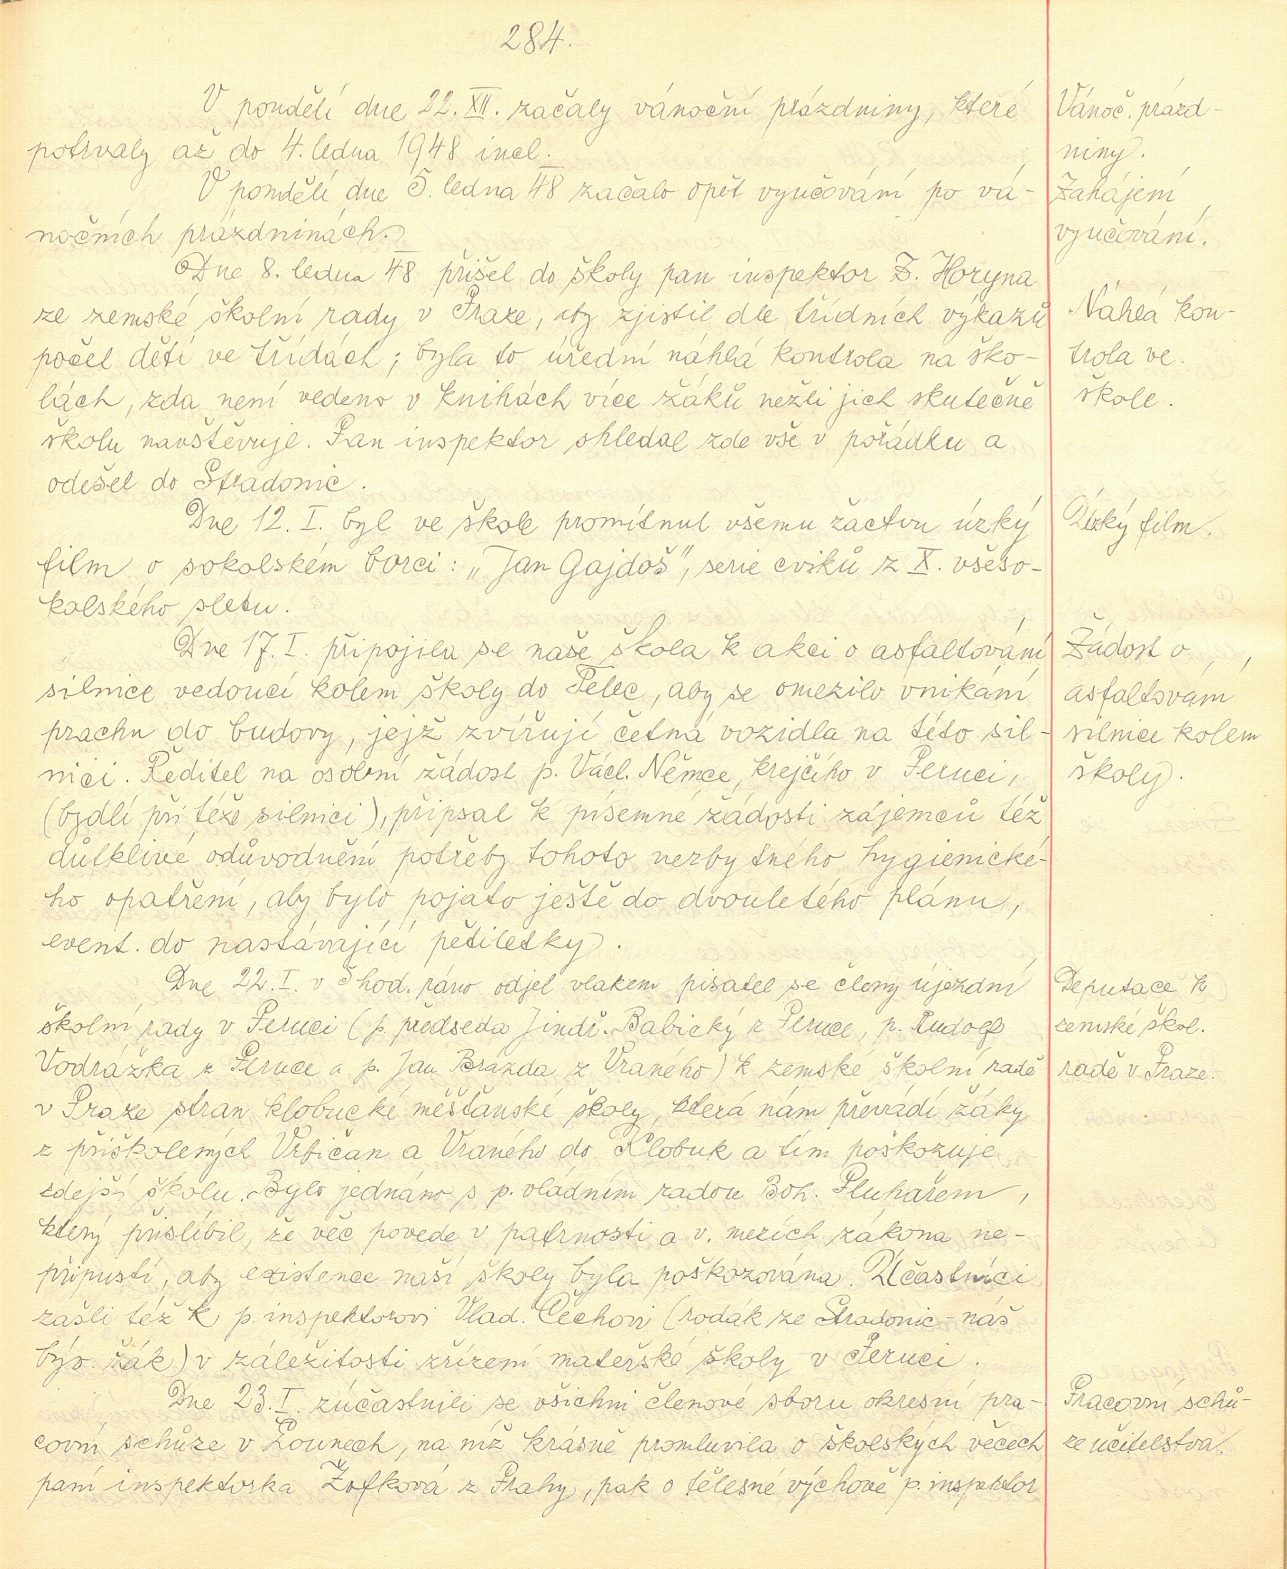 284.
V pondělí dne 22. XII. začaly vánoční prázdniny, které
potrvaly až do 4. ledna 1948 incl.
V pondělí dne 5. ledna 48 začalo opět vyučování po vá-
nočních prázdninách.
Dne 8. ledna 48 přišel do školy pan inspektor Z. Horyna
ze zemské školní rady v Praze, aby zjistil dle třídních výkazů
počet dětí ve třídách; byla to úřední náhlá kontrola na ško-
lách, zda není vedeno v knihách více žáků nežli jich skutečně
školu navštěvuje. Pan inspektor shledal zde vše v pořádku a
odešel do Stradonic.
Dne 12. I. byl ve škole promítnut všemu žactvu úzký
film o sokolském borci: „Jan Gajdoš", serie cviků z X. všeso-
kolského sletu.
Dne 17. I. připojila se naše škola k akci o asfaltování
silnice vedoucí kolem školy do Telec, aby se omezilo vnikání
prachu do budovy, jejž zvířují četná vozidla na této sil-
nici. Ředitel na osobní žádost p. Václ. Němce, krejčího v Peruci,
(bydlí při téže silnici), připsal k písemné žádosti zájemců též
důtklivé odůvodnění potřeby tohoto nezbytného hygienické-
ho opatření, aby bylo pojato ještě do dvouletého plánu,
event. do nastávající pětiletky.
Dne 22. I. v 5 hod. ráno odjel vlakem pisatel se členy újezdní
školní rady v Peruci (p. předseda Jindř. Babický z Peruce, p. Rudolf
Vodrážka z Peruce a p. Jan Brázda z Vraného) k zemské školní radě
v Praze stran klobucké měšťanské školy, která nám převádí žáky
z přiškolených Vrbičan a Vraného do Klobuk a tím poškozuje
zdejší školu. Bylo jednáno s p. vládním radou Boh. Pluhařem,
který přislíbil, že věc povede v patrnosti a v. mezích zákona ne-
připustí, aby existence naší školy byla poškozována. Účastníci
zašli též k p. inspektorovi Vlad. Čechovi (rodák ze Stradonic - náš
býv. žák) v záležitosti zřízení mateřské školy v Peruci.
Dne 23. I. zúčastnili se všichni členové sboru okresní pra-
covní schůze v Lounech, na níž krásně promluvila o školských věcech
paní inspektorka Žofková z Prahy, pak o tělesné výchově p. inspektor
Vánoč. prázd-
niny.
Zahájení
vyučování.
Náhlá kon-
trola ve
škole.
Úzký film.
Žádost o
asfaltování
silnice kolem
školy.
Deputace k
zemské škol.
radě v Praze.
Pracovní schů-
ze učitelstva.